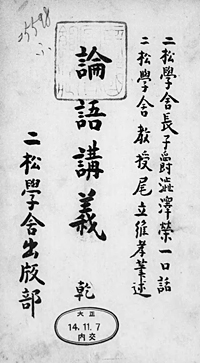 二松學舍長子爵澁澤榮一口話
二松學舍教授尾立維孝筆述
論語講義 乾
二松學舍出版部
大正
14.11.7
内交